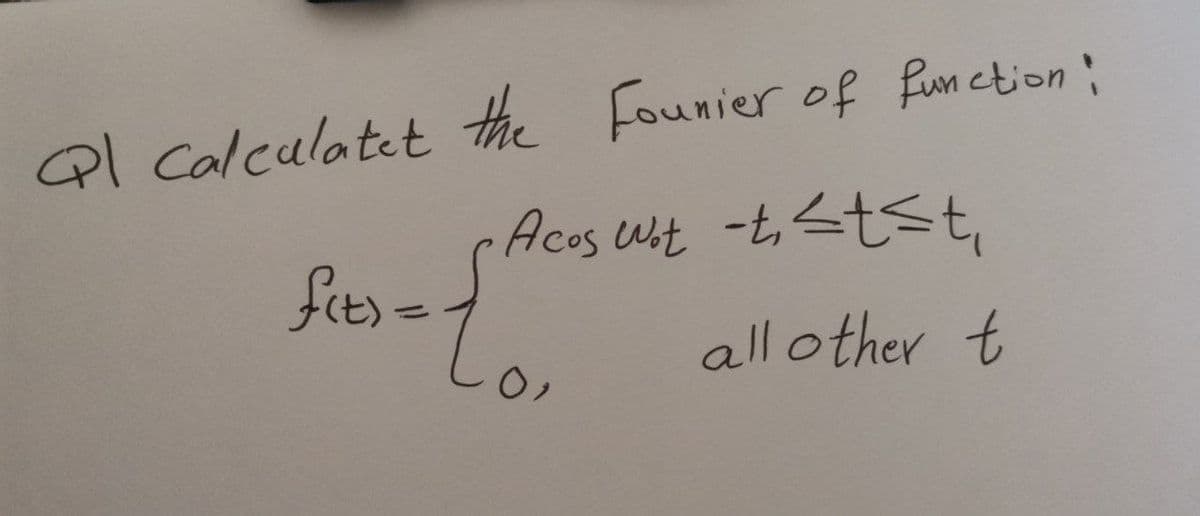 Q1 Calculatet the Founier of function:
f(t) = { Acos W₀t -t₁ ≤ t ≤ t₁
0, all other t